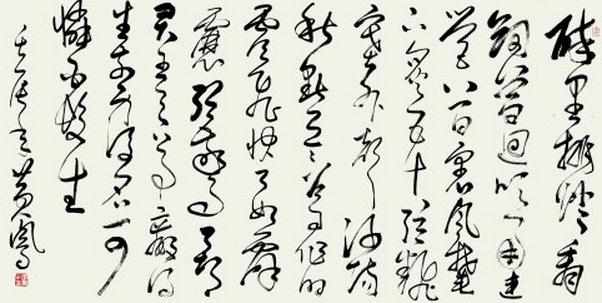 醉里挑灯看
剑梦回吹角连
营八百里分麾
下炙五十弦翻
塞外声沙场
秋点兵马作的
卢飞快弓如霹
雳弦惊了却
君王天下事赢得
生前身后名可
怜白发生